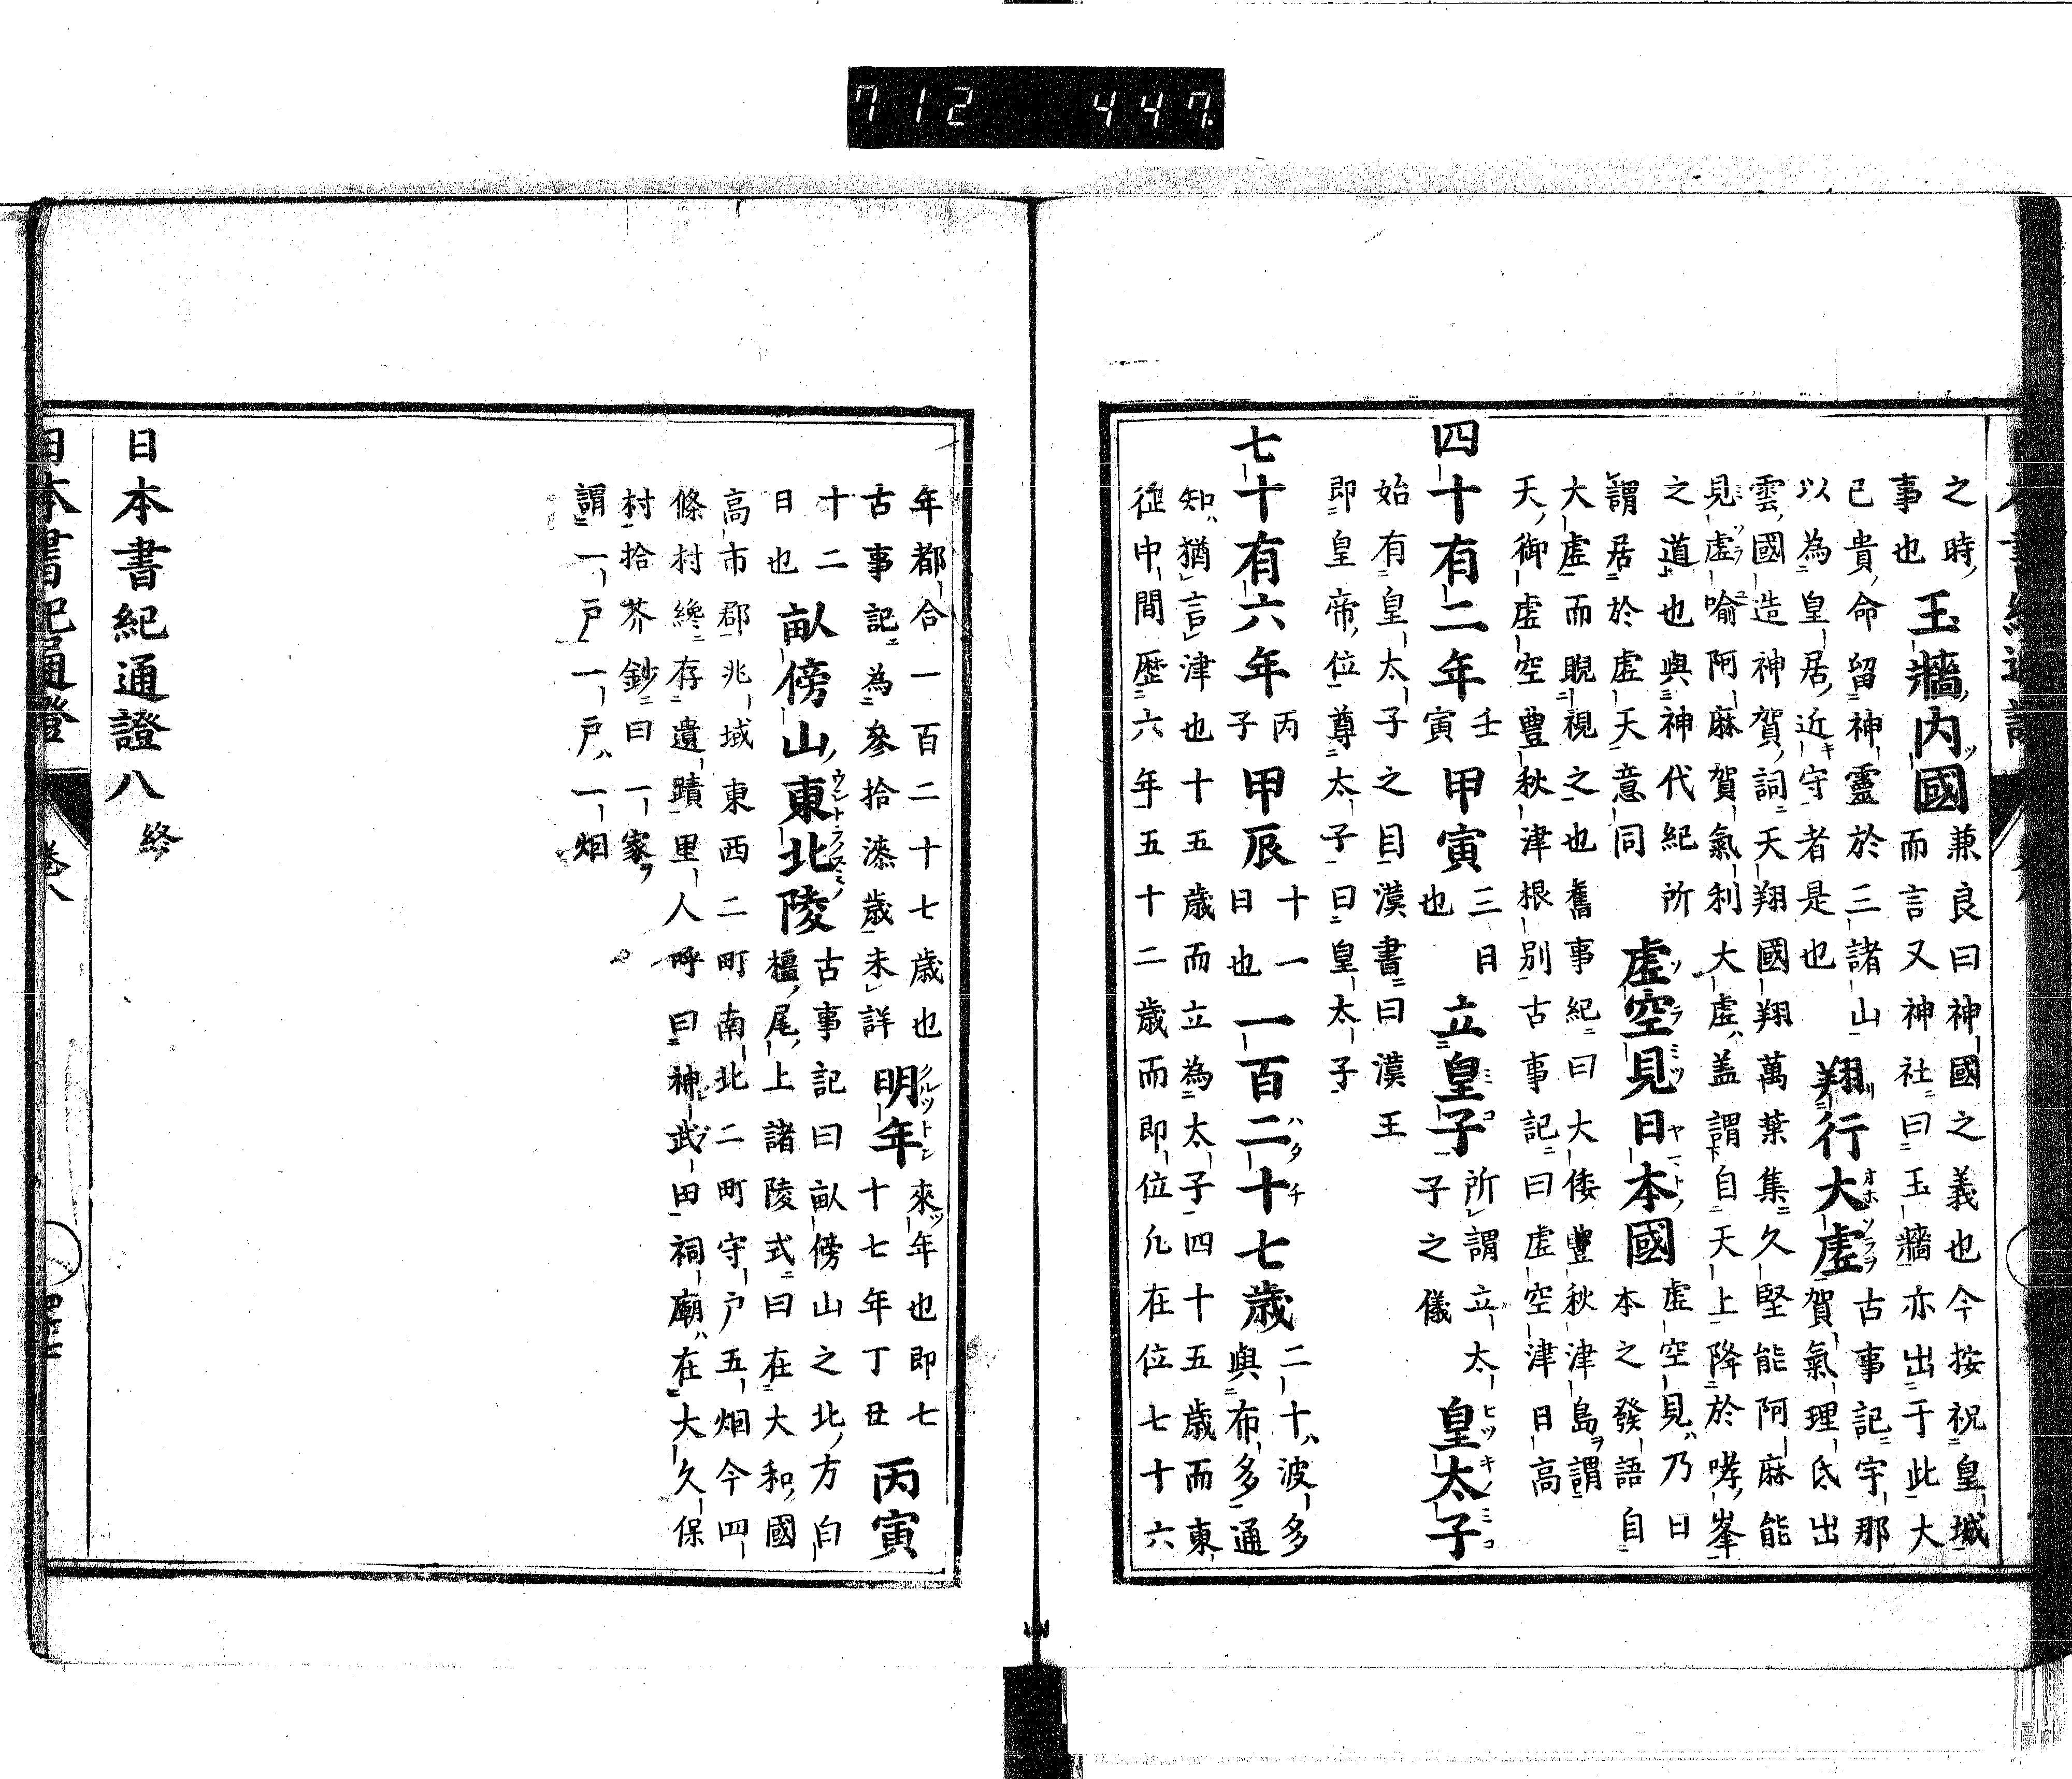 712 447
之時事也玉牆内國兼良曰神國之義也今按祝皇城
而言又神社曰玉牆亦出于此大
已貴命留神靈於三諸山
以為皇居近守者是也翔行大虚古事記宇那
賀氣理氐出
雲國造神賀詞天翔國翔萬葉集久堅能阿麻能
見虚喻阿麻賀氣利大虚盖謂自天上降於哮峯
之道也與神代紀所
謂居於虚天意同虚空見日本國虚空見乃日
本之發語自
大虚而睨視之也舊事紀曰大倭豐秋津島謂
天御虚空豊秋津根別古事記曰虚空津日高
四十有二年壬寅甲寅三日也立皇子所謂立太
子之儀皇太子
始有皇太子之目漢書曰漢王
即皇帝位尊太子曰皇太子
七十有六年丙子甲辰十一日也一百二十七歳二十波多
與布多通
知猶言津也十五歳而立為太子四十五歳而東
征中間歴六年五十二歳而即位凢在位七十六
年都合一百二十七歳也
古事記為參拾漆歳未詳明年來年也即七
十七年丁丑丙寅
十二日也畝傍山東北陵古事記曰畝傍山之北方白
檮尾上諸陵式曰在大和國
高市郡兆域東西二町南北二町守戸五烟今四
條村纔存遺蹟里人呼曰神武田祠廟在大久保
村拾芥鈔曰一家
謂一戸一戸一烟
日本書紀通證八終
日本書紀通證 卷八